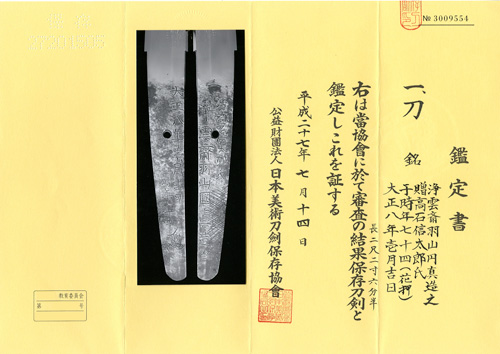 № 3009554
鑑定書
一、刀 銘
浄雲斎羽山円真造之
贈高石信太郎氏
于時年七十四(花押)
大正八年壱月吉日
長二尺二寸六分半
右は當協會に於て審査の結果保存刀剣と
鑑定しこれを証する
平成二十七年七月十四日
公益財團法人日本美術刀剣保存協會
教育委員会
第 号